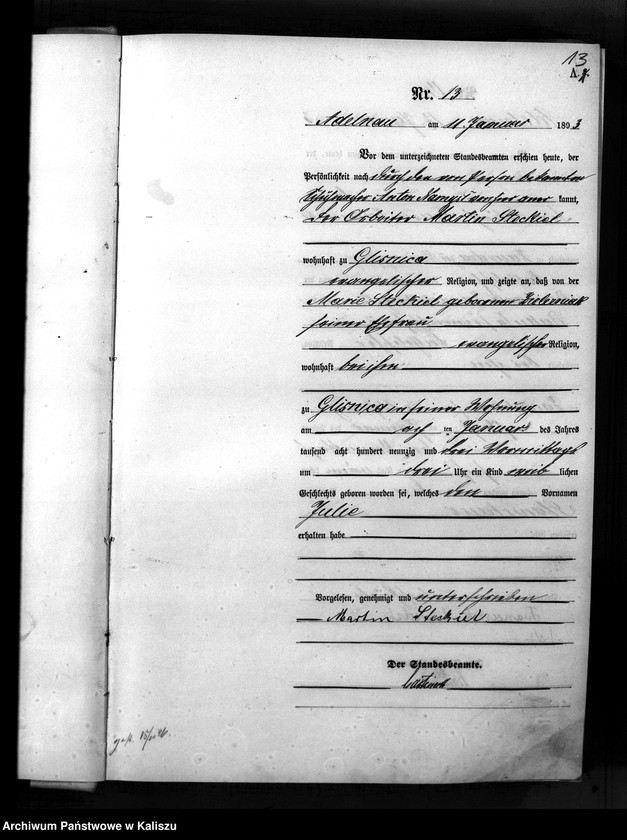 13
A.
Nr. 13
Adelnau am 11. Januar 1893
Vor dem unterzeichneten Standesbeamten erschien heute, der
Persönlichkeit nach durch den von Person bekannten
Anton kannt,
der Arbeiter Martin Steckiel
wohnhaft zu Glisnica
evangelischer Religion, und zeigte an, daß von der
Marie Steckiel geborenen
seiner Ehefrau
evangelischer Religion,
wohnhaft bei ihm
zu Glisnica in seiner Wohnung
am ach ten Januar des Jahres
tausend acht hundert neunzig und drei Vormittags
um drei Uhr ein Kind weib lichen
Geschlechts geboren worden sei, welches den Vornamen
Julie
erhalten habe
Vorgelesen, genehmigt und unterschrieben
Martin Steckiel
Der Standesbeamte.
Archiwum Państwowe w Kaliszu